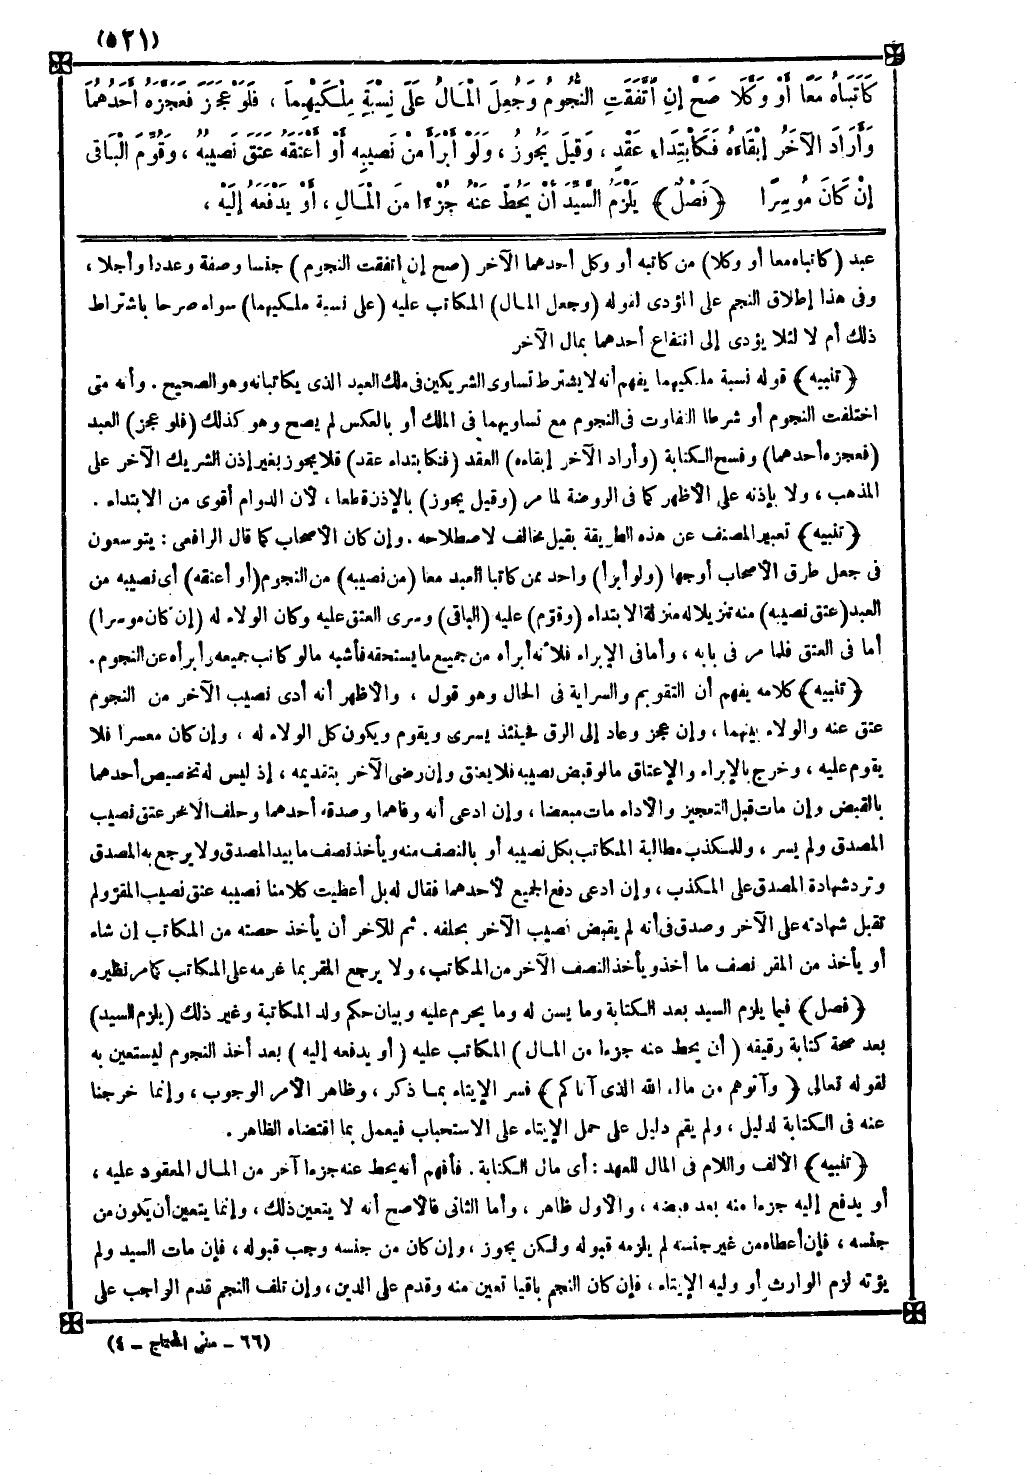 (٥٢١)
كَاتَبَاهُ مَعًا أَوْ وَكَّلَا صَحَّ إِنِ اتَّفَقَتِ النُّجُومُ وَجُعِلَ الْمَالُ عَلَى نِسْبَةِ مِلْكَيْهِمَا ، فَلَوْ عَجَزَ فَعَجَّزَهُ أَحَدُهُمَا
وَأَرَادَ الآخَرُ إِبْقَاءَهُ فَكَابْتِدَاءِ عَقْدٍ ، وَقِيلَ يَجُوزُ ، وَلَوْ أَبْرَأَ مِنْ نَصِيبِهِ أَوْ أَعْتَقَهُ عَتَقَ نَصِيبُهُ ، وَقُوِّمَ الْبَاقِى
إِنْ كَانَ مُوسِرًا ﴿ فَصْلٌ ﴾ يَلْزَمُ السَّيِّدَ أَنْ يَحُطَّ عَنْهُ جُزْءًا مِنَ الْمَالِ ، أَوْ يَدْفَعَهُ إِلَيْهِ ،
عبد (كاتباه معا أو وكلا) من كاتبه أو وكل أحدهما الآخر (صح إن اتفقت النجوم) جنسا وصفة وعددا وأجلا ،
وفى هذا إطلاق النجم على المؤدى لقوله (وجعل المال) المكاتب عليه (على نسبة ملكيهما) سواء صرحا باشتراط
ذلك أم لا لئلا يؤدى إلى انتفاع أحدهما بمال الآخر
﴿ تنبيه ﴾ قوله نسبة ملكيهما يفهم أنه لا يشترط تساوى الشريكين فى ملك العبد الذى يكاتبانه وهو الصحيح . وأنه متى
اختلفت النجوم أو شرطا التفاوت فى النجوم مع تساويهما فى الملك أو بالعكس لم يصح وهو كذلك (فلو عجز) العبد
(فعجزه أحدهما) وفسخ الكتابة (وأراد الآخر إبقاءه) العقد (فكابتداء عقد) فلا يجوز بغير إذن الشريك الآخر على
المذهب ، ولا بإذنه على الأظهر كما فى الروضة لما مر (وقيل يجوز) بالإذن قطعا ، لأن الدوام أقوى من الابتداء .
﴿ تنبيه ﴾ تعبير المصنف عن هذه الطريقة بقيل مخالف لاصطلاحه . وإن كان الأصحاب كما قال الرافعى : يتوسعون
فى جعل طرق الأصحاب أوجها (ولو أبرأ) واحد ممن كاتبا العبد معا (من نصيبه) من النجوم (أو أعتقه) أى نصيبه من
العبد (عتق نصيبه) منه تنزيلا له منزلة الابتداء (وقوّم) عليه (الباقى) وسرى العتق عليه وكان الولاء له (إن كان موسرا)
أما فى العتق فلما مر فى بابه ، وأما فى الإبراء فلأنه أبرأه من جميع ما يستحقه فأشبه ما لو كاتب جميعه وأبرأه عن النجوم .
﴿ تنبيه ﴾ كلامه يفهم أن التقويم والسراية فى الحال وهو قول ، والأظهر أنه أدى نصيب الآخر من النجوم
عتق عنه والولاء بينهما ، وإن عجز وعاد إلى الرق فحينئذ يسرى ويقوم ويكون كل الولاء له ، وإن كان معسرا فلا
يقوم عليه ، وخرج بالإبراء والإعتاق ما لو قبض نصيبه فلا يعتق وإن رضى الآخر بتقديمه ، إذ ليس له تخصيص أحدهما
بالقبض وإن مات قبل التعجيز والأداء مات مبعضا ، وإن ادعى أنه وفاهما وصدقه أحدهما وحلف الآخر عتق نصيب
المصدق ولم يسر ، وللمكذب مطالبة المكاتب بكل نصيبه أو بالنصف منه ويأخذ نصف ما بيد المصدق ولا يرجع به المصدق
وترد شهادة المصدق على المكذب ، وإن ادعى دفع الجميع لأحدهما فقال له بل أعطيت كلا منا نصيبه عتق نصيب المقر ولم
تقبل شهادته على الآخر وصدق فى أنه لم يقبض نصيب الآخر بحلفه . ثم للآخر أن يأخذ حصته من المكاتب إن شاء
أو يأخذ من المقر نصف ما أخذ ويأخذ النصف الآخر من المكاتب ، ولا يرجع المقر بما غرمه على المكاتب كما مر نظيره
﴿ فصل ﴾ فيما يلزم السيد بعد الكتابة وما يسن له وما يحرم عليه وبيان حكم ولد المكاتبة وغير ذلك (يلزم السيد)
بعد صحة كتابة رقيقه ( أن يحط عنه جزءا من المال ) المكاتب عليه ( أو يدفعه إليه ) بعد أخذ النجوم ليستعين به
لقوله تعالى ﴿ وآتوهم من مال الله الذى آتاكم ﴾ فسر الإيتاء بما ذكر ، وظاهر الأمر الوجوب ، وإنما خرجنا
عنه فى الكتابة لدليل ، ولم يقم دليل على حمل الإيتاء على الاستحباب فيعمل بما اقتضاه الظاهر .
﴿ تنبيه ﴾ الألف واللام فى المال للعهد : أى مال الكتابة . فأفهم أنه يحط عنه جزءا آخر من المال المعقود عليه ،
أو يدفع إليه جزءا منه بعد قبضه ، والأول ظاهر ، وأما الثانى فالأصح أنه لا يتعين ذلك ، وإنما يتعين أن يكون من
جنسه ، فإن أعطاه من غير جنسه لم يلزمه قبوله ولكن يجوز ، وإن كان من جنسه وجب قبوله ، فإن مات السيد ولم
يؤته لزم الوارث أو وليه الإيتاء ، فإن كان النجم باقيا تعين منه وقدم على الدين ، وإن تلف النجم قدم الواجب على
(٦٦ - مغنى المحتاج - ٤)